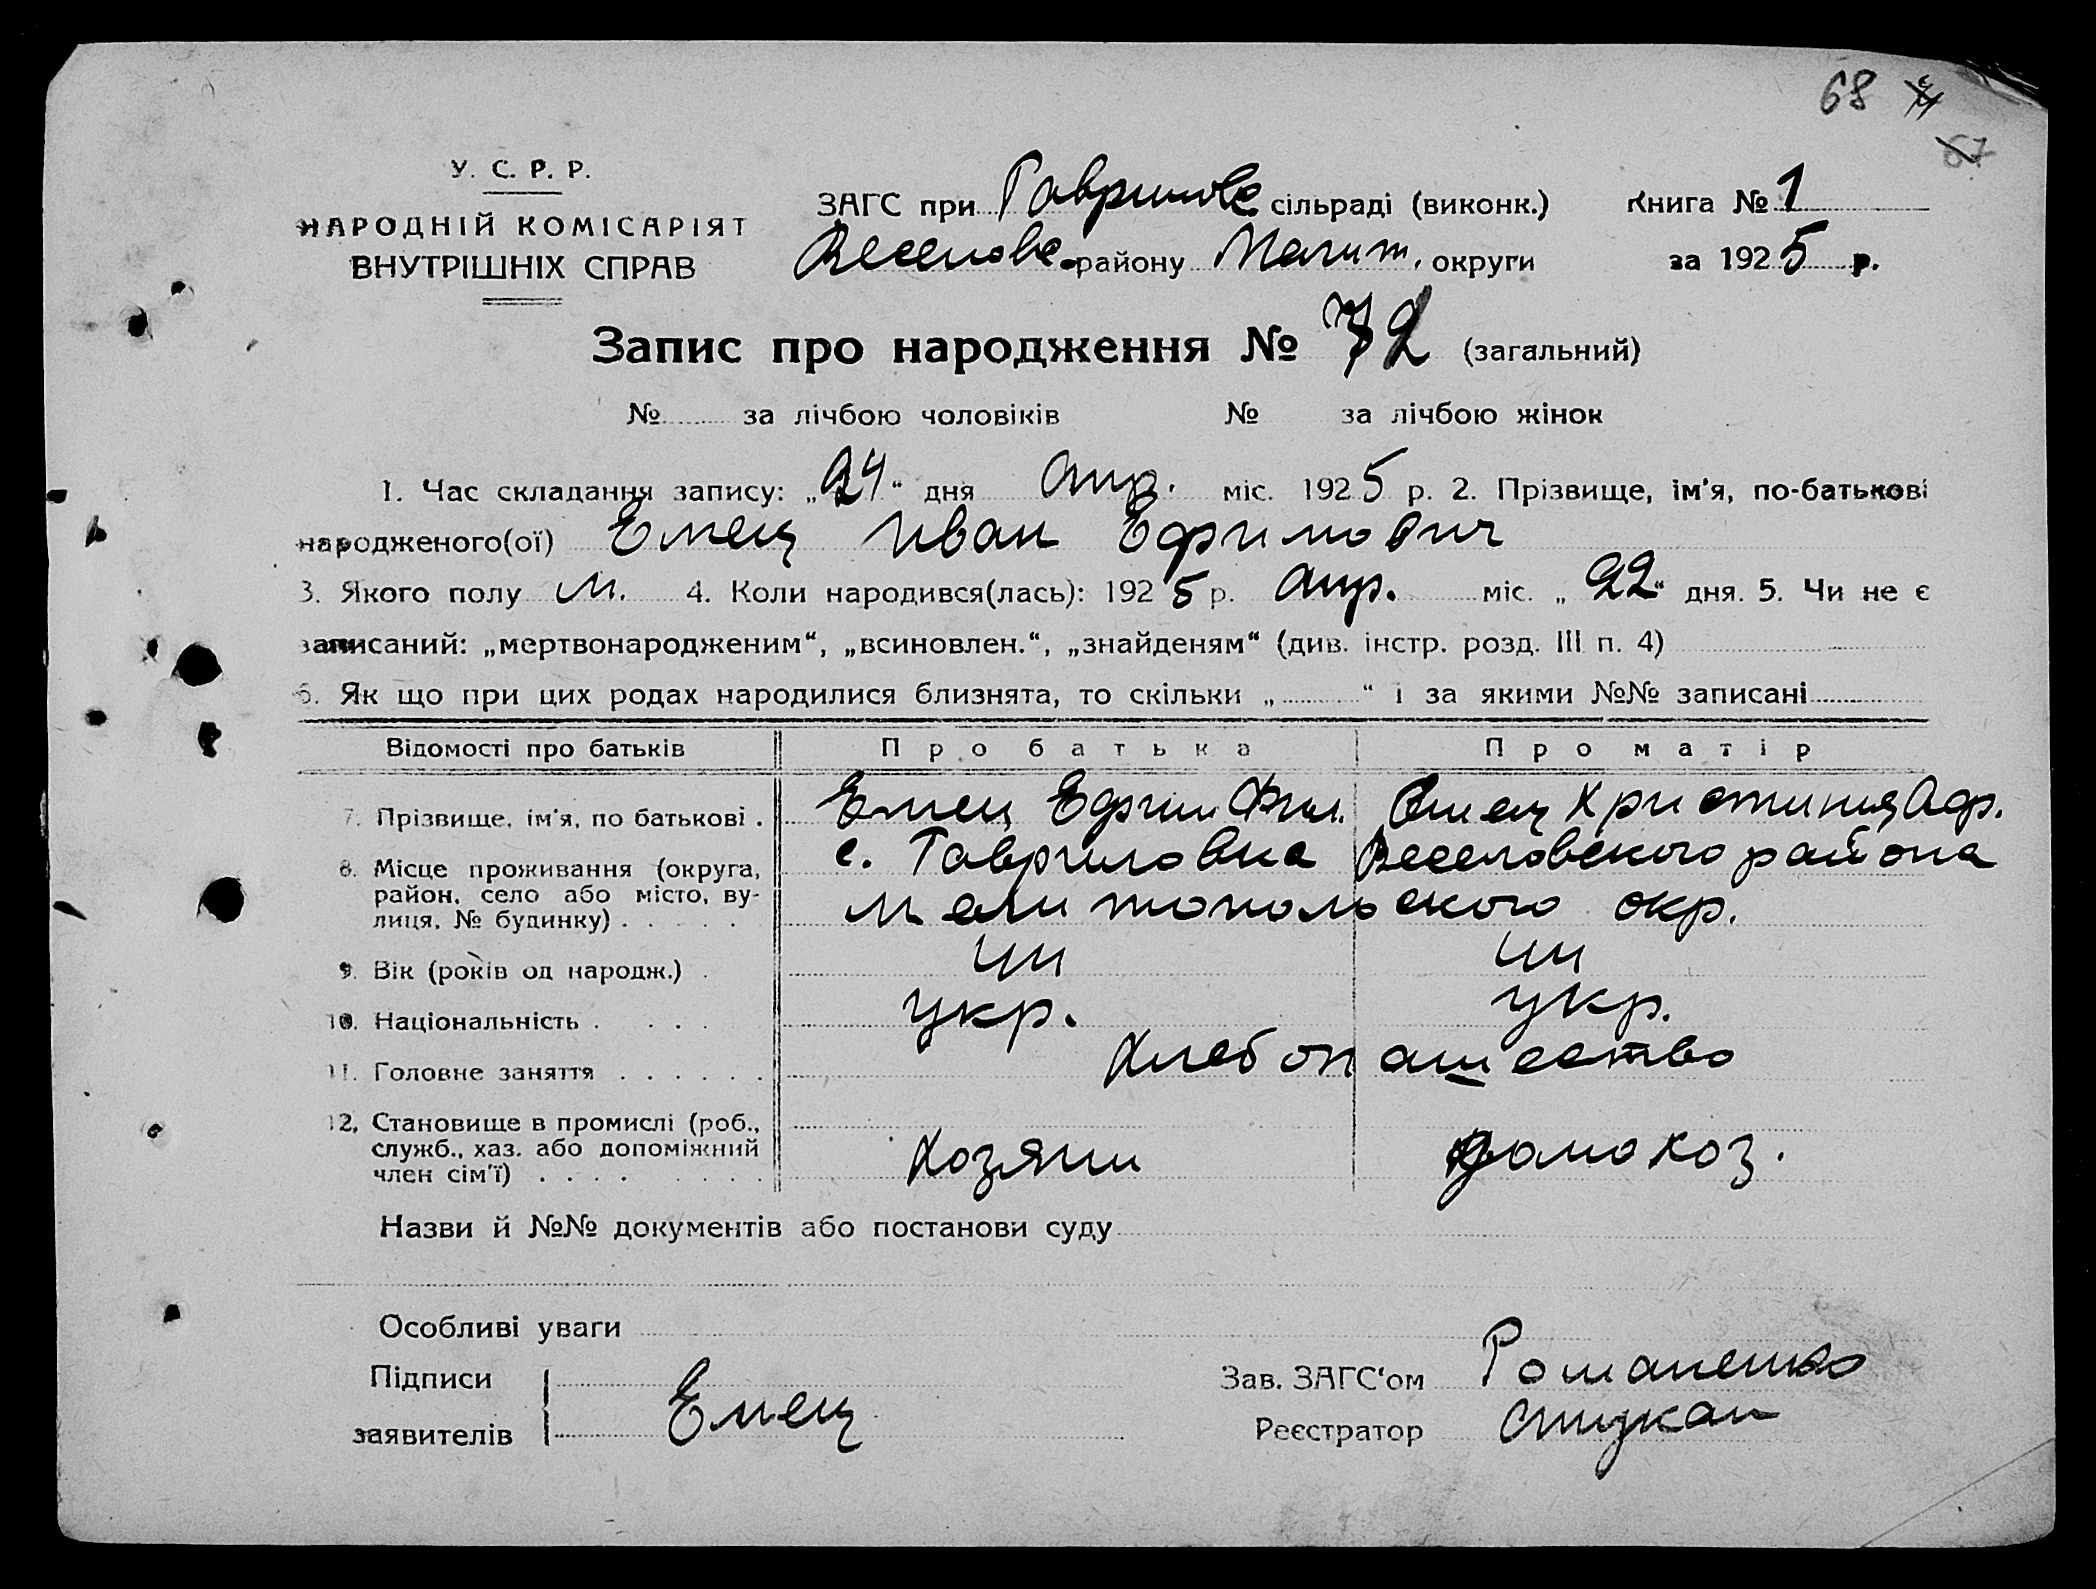 68
67
У. С. Р. Р.
НАРОДНІЙ КОМІСАРІЯТ
ВНУТРІШНІХ СПРАВ
ЗАГС при Гаврилов. сільраді (виконк.) Книга № 1
Веселовс. району Мелит. округи за 1925 р.
Запис про народження № 72 (загальний)
№ за лічбою чоловіків № за лічбою жінок
1. Час складання запису: „24“ дня апр. міс. 1925 р. 2. Прізвище, ім'я, по-батькові
народженого(ої) Емец Иван Ефимович
3. Якого полу м. 4. Коли народився(лась): 1925 р. апр. міс. „22“ дня. 5. Чи не є
записаний: „мертвонародженим“, „всиновлен.“, „знайденям“ (див. інстр. розд. III п. 4)
6. Як що при цих родах народилися близнята, то скільки „ “ і за якими №№ записані
Відомості про батьків Про батька Про матір
7. Прізвище, ім'я, по батькові . Емец Ефим Фил. Емец Христиния
8. Місце проживання (округа, район, село або місто, вулиця, № будинку) . . . . . с. Гавриловка Веселовского района
Мелитопольского окр.
9. Вік (років од народж.) .
10. Національність . . . . укр. укр.
11. Головне заняття . . . . . . Хлебопашество
12, Становище в промислі (роб., служб., хаз. або допоміжний член сім'ї) . . . . . . . . Хозяин домохоз.
Назви й №№ документів або постанови суду
Особливі уваги
Підписи
заявителів Емец
Зав. ЗАГС'ом Романенко
Реєстратор Стукан